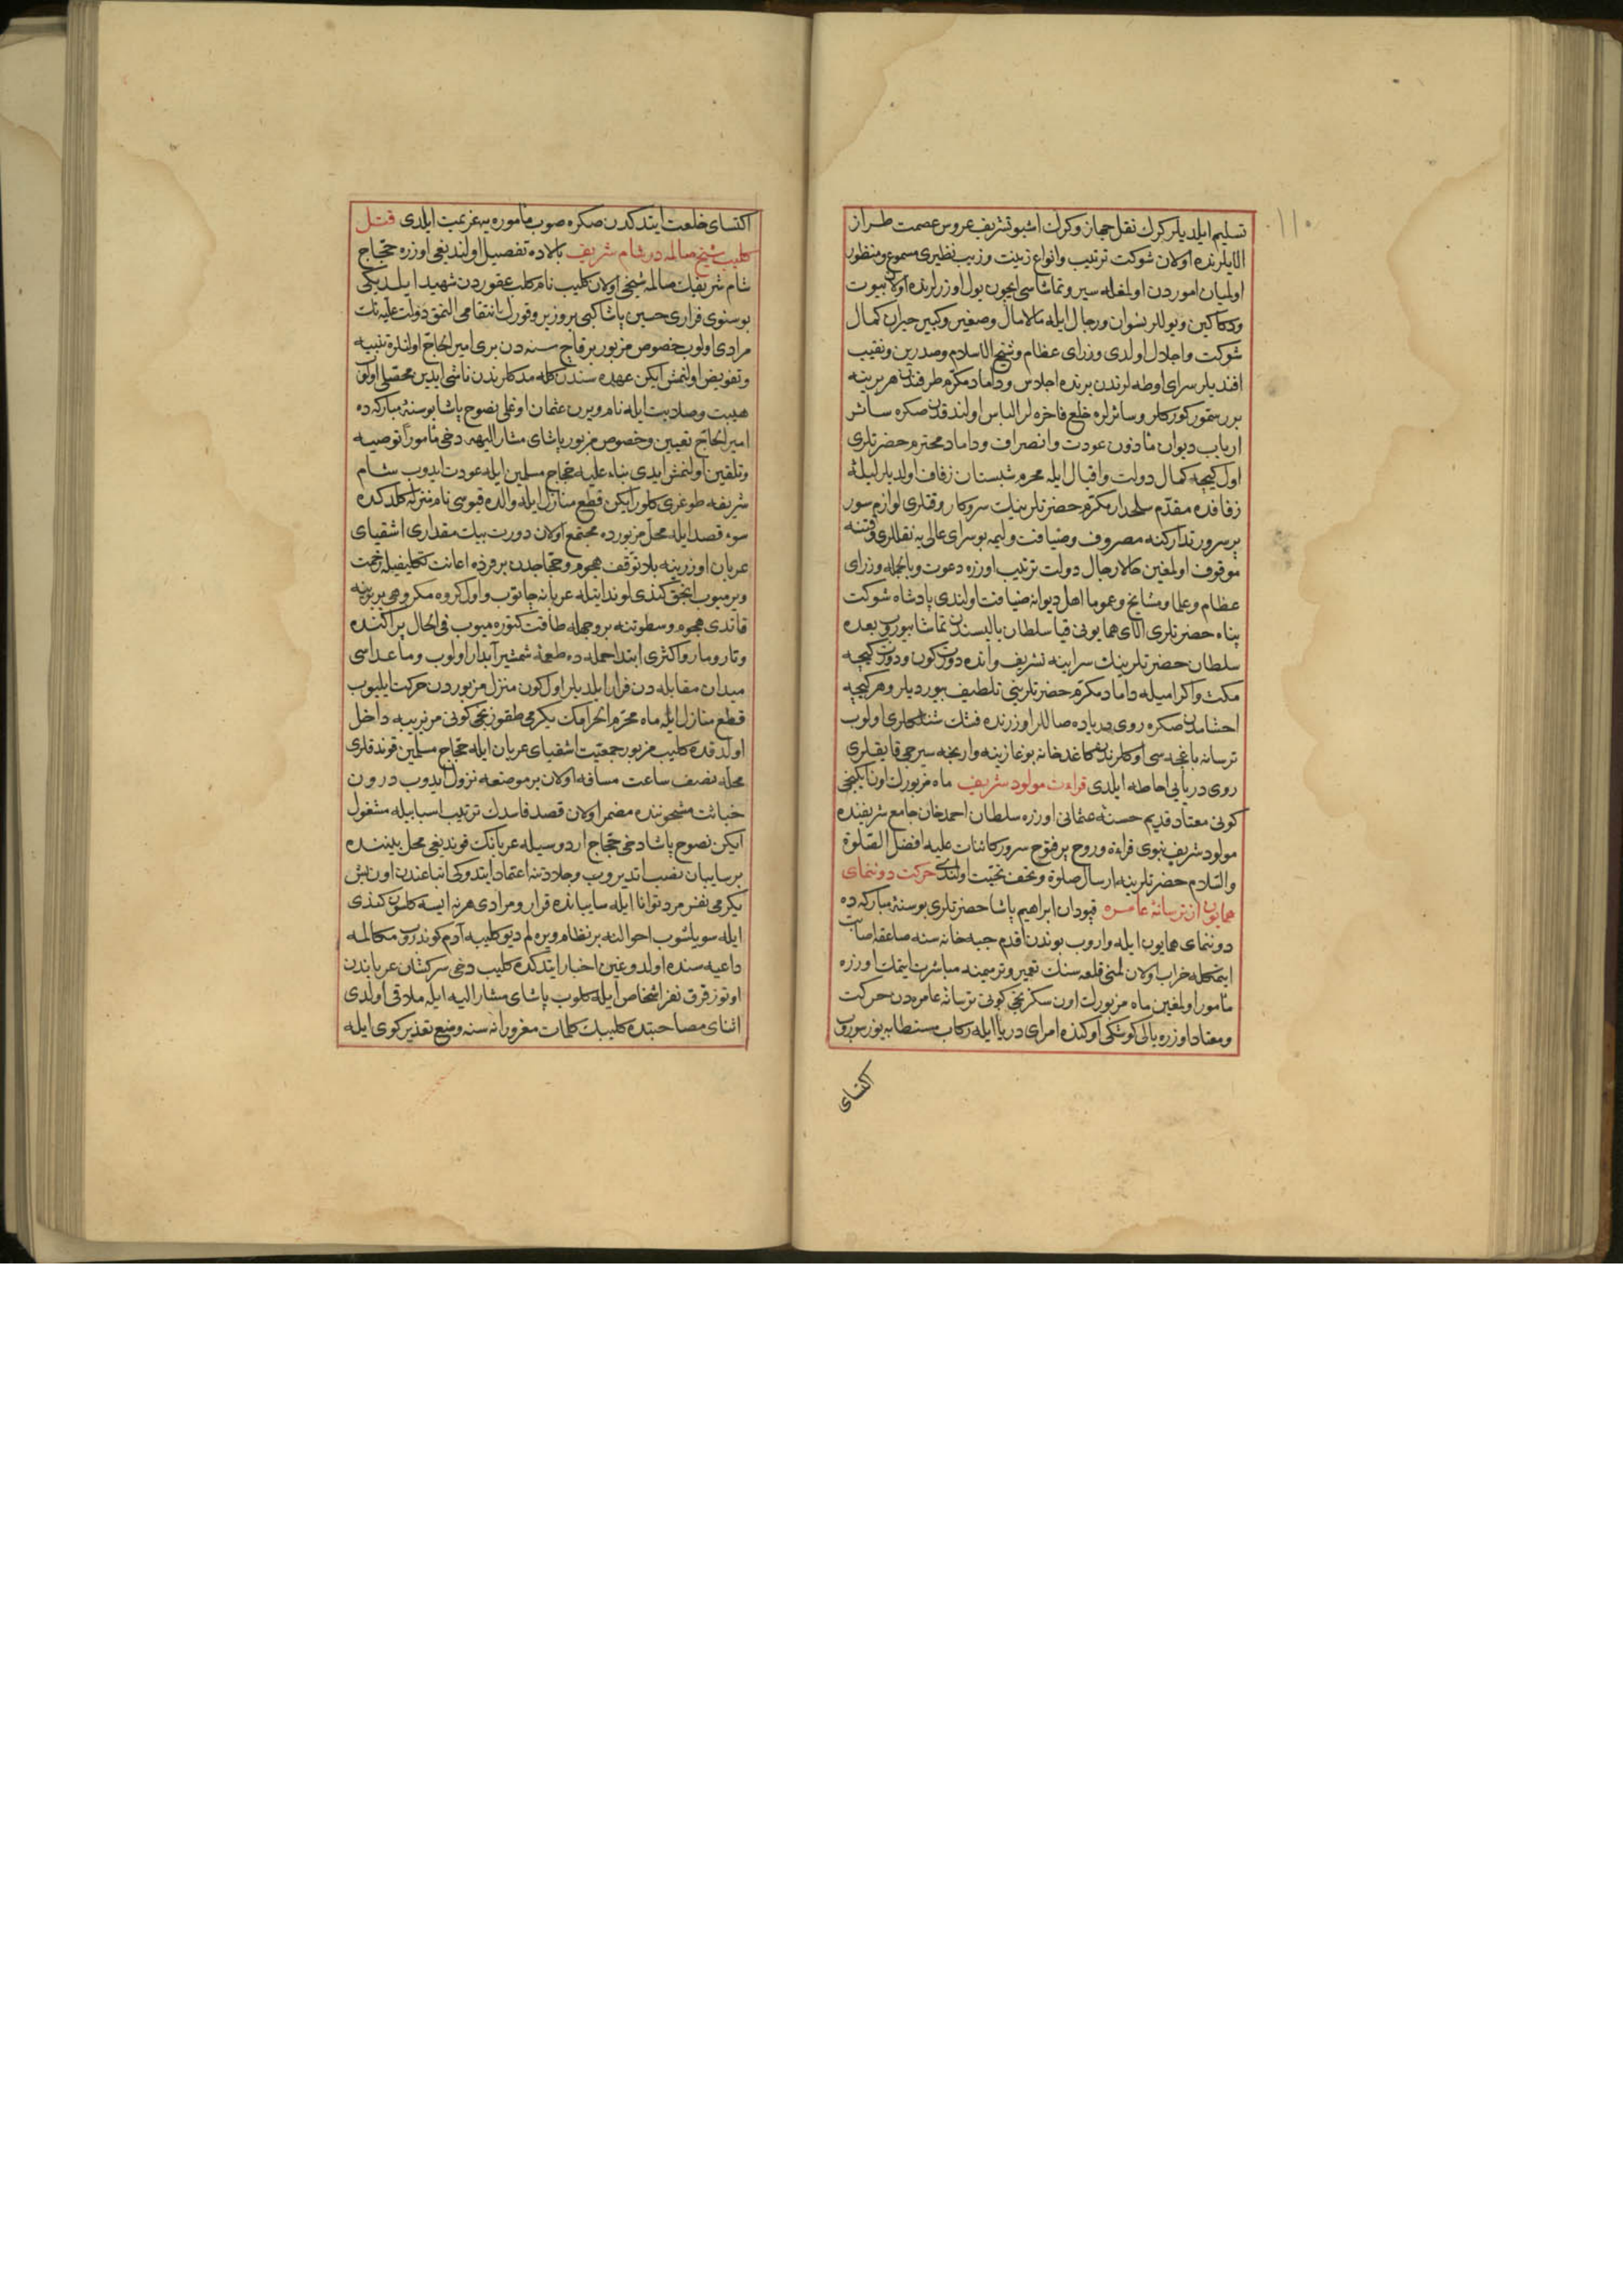 ١١٠
تسليم ايلديلر كرك نقل جهاز وكرك اشبو تشريف عروس عصمت طراز
الايلرنده اولان شوكت ترتيب وانواع زينت وزيب نظيرى مسموع ومنظور
اولميان اموردن اولمغله سير وتماشاسى ايچون يول اوزرلرنده اولان بيوت
ودكاكين ويوللر نسوان ورجال ايله مالامال وصغير وكبير حيران كمال
شوكت واجلال اولدى وزراى عظام وشيخ الاسلام وصدرين ونقيب
افنديلر سراى اوطه لرندن برنده اجلاس وداماد مكرم طرفندن هر برينه
برر سمور كوركلر وسائرلره خلع فاخره لر الباس اولندقدن صكره سائر
ارباب ديوان مأذون عودت وانصراف وداماد محترم حضرتلرى
اول كيجه كمال دولت واقبال ايله محرم شبستان زفاف اولديلر ليلۀ
زفافده مقدم سلحدار مكرم حضرتلرينك سروكار وقتلرى لوازم سور
پرسرور تداركنه مصروف وضيافت وليمه بو سراى عالى يه نقللرى وقتنه
موقوف اولمغين حالا رجال دولت ترتيب اوزره دعوت وبالجمله وزراى
عظام وعلما ومشايخ وعموما اهل ديوانه ضيافت اولندى پادشاه شوكت
پناه حضرتلرى الاى همايونى قيا سلطان ياليسندن تماشا بيوروب بعده
سلطان حضرتلرينك سراينه تشريف وانده دورت كون ودورت كيجه
مكث واكراميله داماد مكرم حضرتلرينى تلطيف بيورديلر وهر كيجه
اخشامدن صكره روى درياده صاللر اوزرنده فشنك شنلكلرى اولوب
ترسانه باغچه سى اوكلرندن كاغدخانه بوغازينه وارنجه سيرجى قايقلرى
روى دريايى احاطه ايلدى قراءت مولود شريف ماه مزبورك اون ايكنجى
كونى معتاد قديم حسنۀ عثمانى اوزره سلطان احمد خان جامع شريفنده
مولود شريف نبوى قراءة وروح پرفتوح سرور كائنات عليه افضل الصلوة
والسلام حضرتلرينه ارسال صلوة وتحف تحيت اولندى حركت دوننماى
همايون از ترسانۀ عامره قپودان ابراهيم پاشا حضرتلرى بو سنۀ مباركه ده
دوننماى همايون ايله واروب بوندن اقدم جبه خانه سنه صاعقه اصابت
ايتمكله خراب اولان لمنى قلعه سنك تعمير وترميمنه مباشرت ايتمك اوزره
مأمور اولمغين ماه مزبورك اون سكزنجى كونى ترسانۀ عامره دن حركت
ومعتاد اوزره يالى كوشكى اوكنده امراى دريا ايله ركاب مستطابه يوز سوروب
اكتساى
اكتساى خلعت ايتدكدن صكره صوب مأموره يه عزيمت ايلدى قتل
كليب شيخ مسالمه در شام شريف بالاده تفصيل اولنديغى اوزره حجاج
شام شريفك مسالمه شيخى اولان كليب نام كلب عقوردن شهيد ايلديكى
بوسنوى فرارى حسين پاشا كبى بر وزير وقورك انتقامى النمق دولت عليه نك
مرادى اولوب خصوص مزبور بر قاچ سنه دن برى امير الحاج اولنلره تنبيه
وتفويض اولنمش ايكن عهده سندن كله مدكلرندن ناشى
هيبت وصلابت ايله نام ويرن عثمان اوغلى نصوح پاشا بو سنۀ مباركه ده
امير الحاج تعيين وخصوص مزبور پاشاى مشار اليهه دخى مأمورا توصيه
وتلقين اولنمش ايدى بناء عليه حجاج مسلمين ايله عودت ايدوب شام
شريفه طوغرى كلورايكن قطع منازل ايله والده قپوسى نام منزله كلدكده
سوء قصد ايله محل مزبورده مجتمع اولان دورت بيك مقدارى اشقياى
عربان اوزرينه بلا توقف هجوم وحجاجدن بر فرده اعانت تكليفيله زحمت
ويرميوب انجق كندى لونداتيله عربانه چاتوب واول كروه مكروهى بربرينه
قاتدى هجوم وسطوتنه بر وجهله طاقت كتوره ميوب فى الحال پراكنده
وتارومار واكثرى ابتدا حمله ده طعمۀ شمشير آبدار اولوب وماعداسى
ميدان مقابله دن فرار ايلديلر اول كون منزل مزبوردن حركت ايليوب
قطع منازل ايله ماه محرم الحرامك يكرمى طقوزنجى كونى مزيريبه داخل
اولدقده كليب مزبور جمعيت اشقياى عربان ايله حجاج مسلمين قوندقلرى
محله نصف ساعت مسافه اولان بر موضعه نزول ايدوب درون
خباثت مشحوننده مضمر اولان قصد فاسدك ترتيب اسبابيله مشغول
ايكن نصوح پاشا دخى حجاج اردوسيله عربانك قونديغى محل بيننده
بر سايبان نصب ايتديروب وجلادتنه اعتماد ايتدوكى اتباعندن اون بش
يكرمى نفر مرد توانا ايله سايبانده قرار ومرادى هر نه ايسه كلسون كندى
ايله سويلشوب احوالنه بر نظام ويره لم ديو كليبه آدم كوندروب مكالمه
داعيه سنده اولدوغين اخبار ايتدكده كليب دخى سركشان عرباندن
اوتوز قرق نفر اشخاص ايله كلوب پاشاى مشار اليه ايله ملاقى اولدى
اثناى مصاحبتده كليبك كلمات مغرورانه سنه وضع تغذير كوى ايله